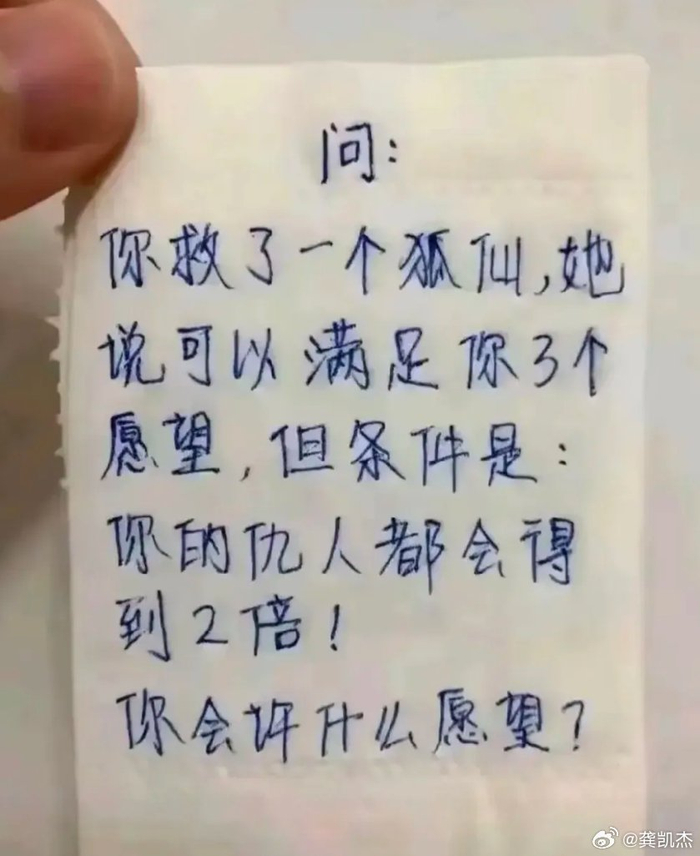 问：
你救了一个狐仙，她
说可以满足你3个
愿望，但条件是：
你的仇人都会得
到2倍！
你会许什么愿望？
@龚凯杰